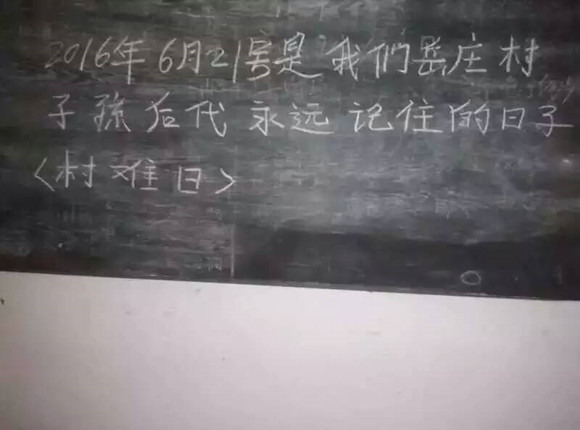 2016年 6月21号是 我们岳庄村
子孫后代 永远 记住的日子
<村难日>